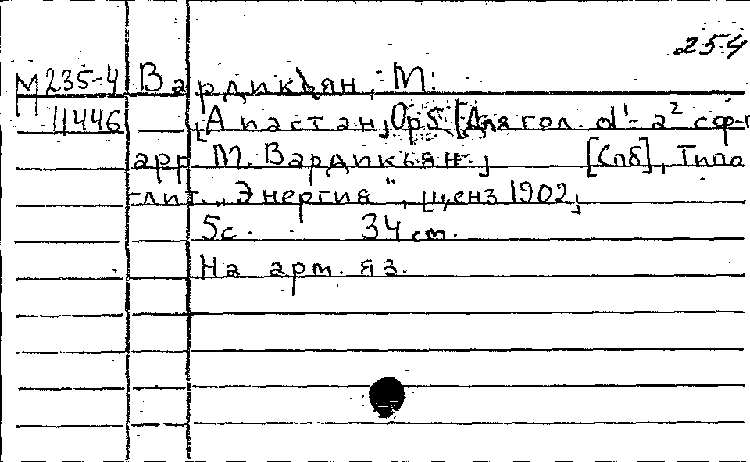 254
М 235-4 Вардикьян, М.
11446 [Апастан, Op 5 [Для гол. d¹- a² с ф-п
арр. М. Вардикьян.] [Спб], Типо
-лит. „Энергия“, [ценз 1902]
5с. 34 см.
На арм. яз.